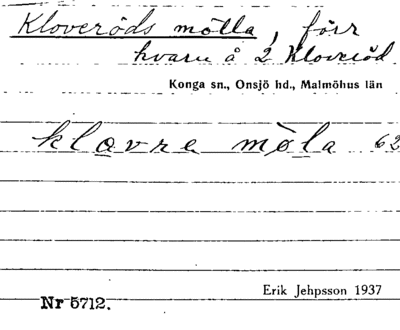 Kloveröds mölla, förr
kvarn å 2 Kloveröd
Konga sn., Onsjö hd., Malmöhus län
klovre möla 62
Erik Jehpsson 1937
Nr 5712.